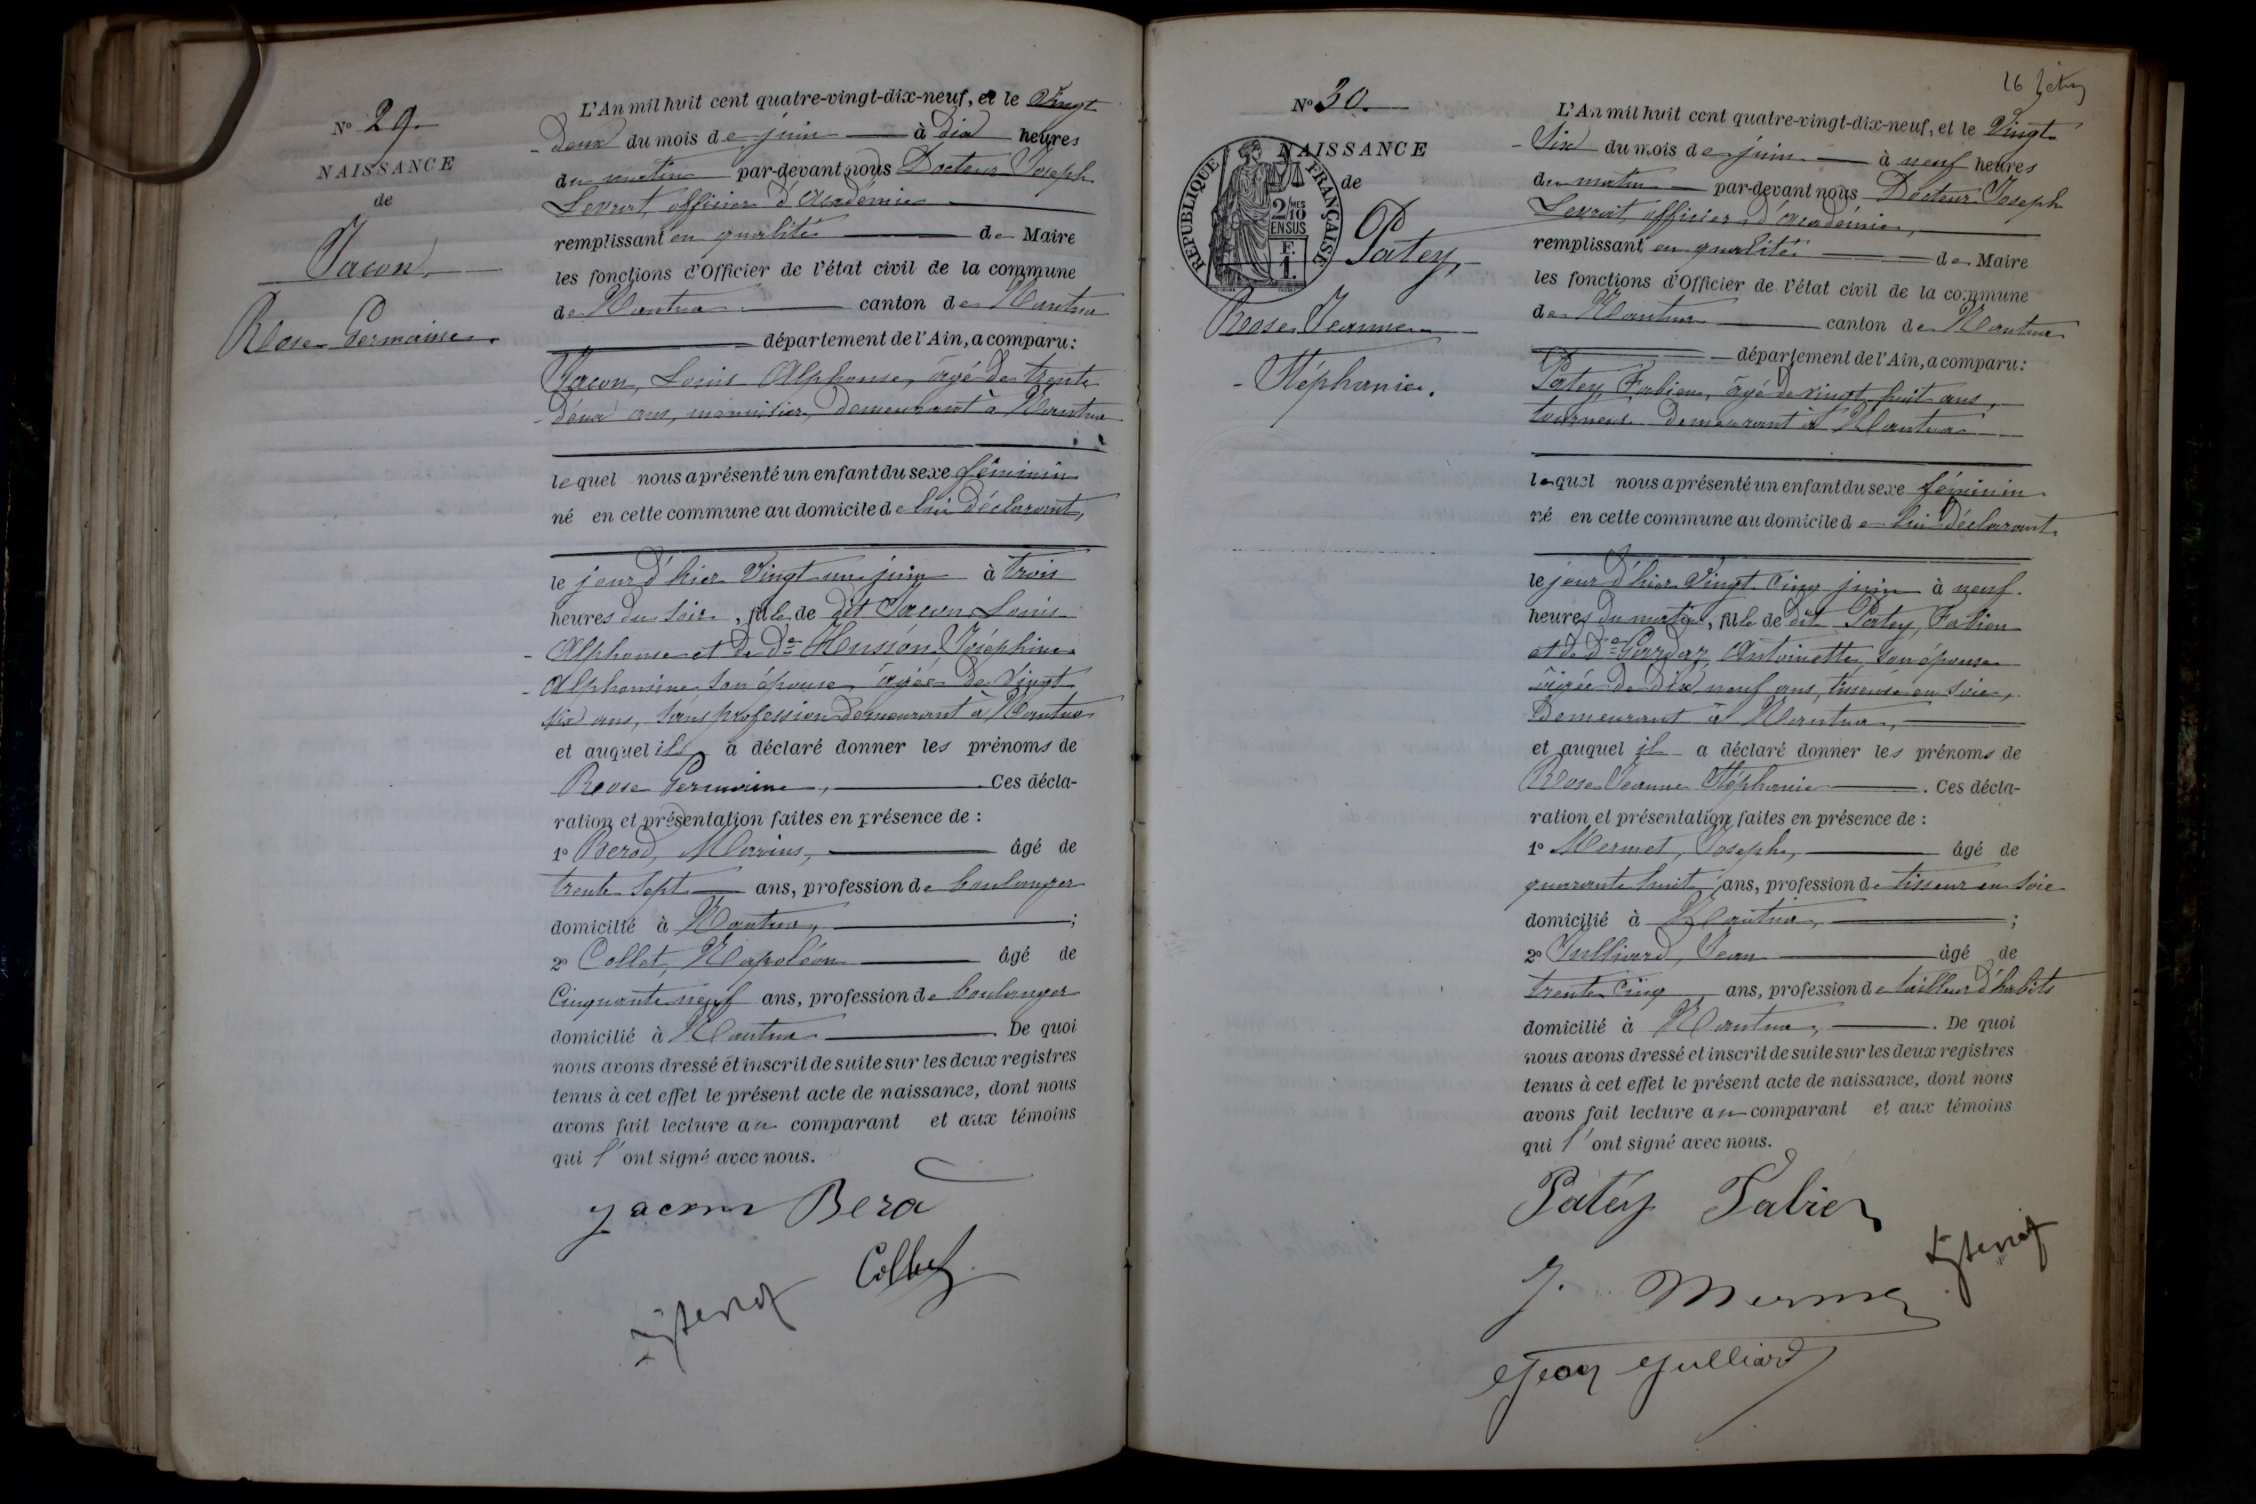 N° 29.
NAISSANCE
de
Jacon,
Rose Germaine.
L'An mil huit cent quatre-vingt-dix-neuf, et le Vingt
- Deux du mois de juin à Dix heures
du matin par-devant nous Docteur Joseph
Levrat, officier d'Académie
remplissant en qualité de Maire
les fonctions d'Officier de l'état civil de la commune
de Nantua canton de Nantua
département de l'Ain, a comparu :
Jacon, Louis Alphonse, âgé de trente
- Deux ans, menuisier, demeurant à Nantua
lequel nous a présenté un enfant du sexe féminin
né en cette commune au domicile de lui déclarant,
le jour d'hier Vingt un juin à trois
heures du soir, fille de dit Jacon Louis
- Alphonse et de De Husson Joséphine
- Alphonsine son épouse, âgée de Vingt
six ans, sans profession demeurant à Nantua
et auquel il a déclaré donner les prénoms de
Rose Germaine, Ces décla-
ration et présentation faites en présence de :
1° Berod, Marius, âgé de
trente sept ans, profession de boulanger
domicilié à Nantua, ;
2° Collet, Napoléon âgé de
Cinquante neuf ans, profession de boulanger
domicilié à Nantua De quoi
nous avons dressé et inscrit de suite sur les deux registres
tenus à cet effet le présent acte de naissance, dont nous
avons fait lecture au comparant et aux témoins
qui l'ont signé avec nous.
Jacon Berod
Collet
26
N° 30.
NAISSANCE
de
RÉPUBLIQUE FRANÇAISE
2/10 MES
EN SUS
F.
1.
Patey,
Rose Jeanne
- Stéphanie.
L'An mil huit cent quatre-vingt-dix-neuf, et le Vingt
- Six du mois de juin à neuf heures
du matin par-devant nous Docteur Joseph
Levrat, officier d'académie,
remplissant en qualité de Maire
les fonctions d'Officier de l'état civil de la commune
de Nantua canton de Nantua
département de l'Ain, a comparu :
Patey Fabien, âgé de vingt huit ans,
tourneur demeurant à Nantua
lequel nous a présenté un enfant du sexe féminin
né en cette commune au domicile de lui déclarant.
le jour d'hier Vingt Cinq juin à neuf
heures du matin, fille de dit Patey, Fabien
et de De Antoinette son épouse
âgée de dix neuf ans, tisseuse en soie,
Demeurant à Nantua,
et auquel il a déclaré donner les prénoms de
Rose Jeanne Stéphanie. Ces décla-
ration et présentation faites en présence de :
1° Mermet, Joseph, âgé de
quarante huit ans, profession de tisseur en soie
domicilié à Nantua, ;
2° Julliard, Jean âgé de
trente Cinq ans, profession de tailleur d'habits
domicilié à Nantua, . De quoi
nous avons dressé et inscrit de suite sur les deux registres
tenus à cet effet le présent acte de naissance, dont nous
avons fait lecture au comparant et aux témoins
qui l'ont signé avec nous.
Patey Fabien
J. Mermet
Jean Julliard